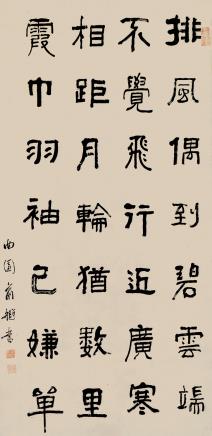 排風偶到碧雲端
不覺飛行近廣寒
相距月輪猶數里
霞巾羽袖已嫌單
曲園俞樾書